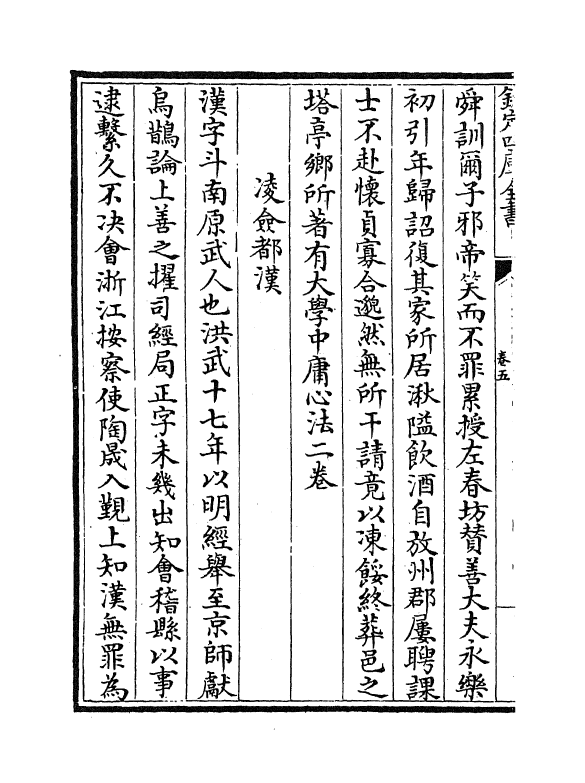 欽定四庫全書
卷五
舜訓爾子邪帝笑而不罪累授左春坊賛善大夫永樂
初引年歸詔復其家所居湫隘飲酒自放州郡屢聘課
士不赴懷貞寡合邈然無所干請竟以凍餒終葬邑之
塔亭鄉所著有大學中庸心法二卷
凌僉都漢
漢字斗南原武人也洪武十七年以明經舉至京師獻
烏鵲論上善之擢司經局正字未幾出知會稽縣以事
逮繫久不决會浙江按察使陶晟入覲上知漢無罪為